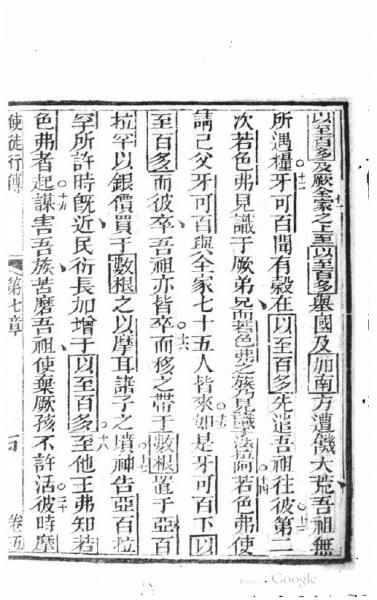 以至百多及厥全家之上至以至百多舉國及加南方遭饑大荒吾祖無
所遇糧十二牙可百聞有穀在以至百多先遣吾祖往彼十三第二
次若色弗見識于厥弟兄而若色弗之族乃見識乎法拉阿十四若色弗使
請己父牙可百與全家七十五人皆來十五如是牙可百下以
至百多而彼卒吾祖亦皆卒十六而移之帶于數根置于亞百
拉罕以銀價買于數根之以摩耳諸子之墳十七神告亞百拉
罕所許時旣近民衍長加增于以至百多十八至他王弗知若
色弗者起十九謀害吾族苦磨吾祖使棄厥孩不許活二十彼時摩
使徒行傳
第七章
卷五
Google